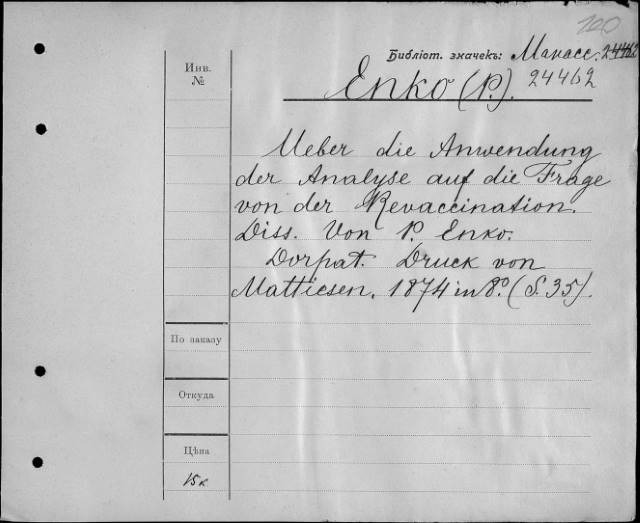 100
Библіот. значекъ: Манасс. 24462
Инв.
№
Enko (P.). 24462
Ueber die Anwendung
der Analyse auf die Frage
von der Revaccination.
Diss. Von P. Enko.
Dorpat. Druck von
Mattiesen. 1874 in 8º. (S. 35).
По заказу
Откуда
Цѣна
15к